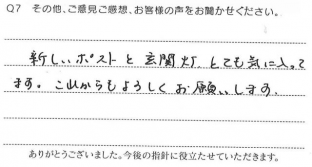 Q7 その他、ご意見ご感想、お客様の声をお聞かせください。
新しいポストと玄関灯、とても気に入って
ます。これからもよろしくお願いします。
ありがとうございました。今後の指針に役立たせていただきます。